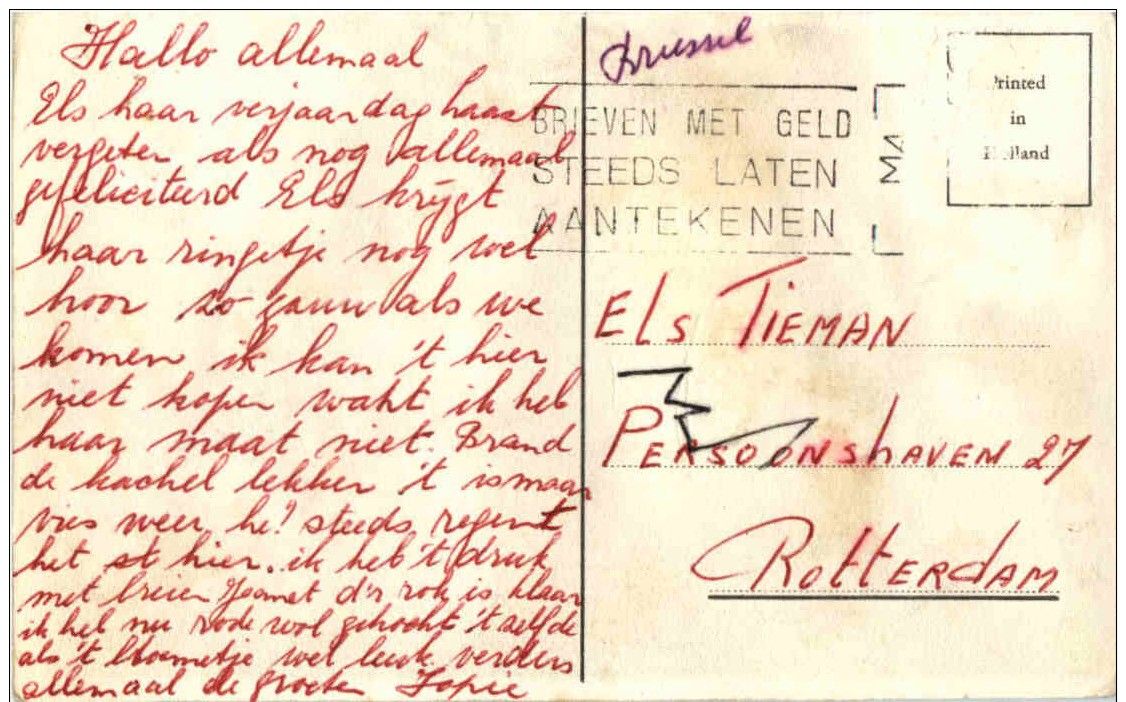 Hallo allemaal
Els haar verjaardag haast
vergeten als nog allemaal
gefeliciteerd Els krijgt
haar ringetje nog wel
hoor zo gauw als we
komen ik kan 't hier
niet kopen waht ik heb
haar maat niet. Brand
de kachel lekker 't is maar
vies weer he! steeds regent
het st hier. ik heb 't druk
met breien Jeannet d'r rok is klaar
ik heb nu rode wol gekocht 't zelfde
als 't bloemetje wel leuk verders
allemaal de groeten Jopie
Brussel
BRIEVEN MET GELD
STEEDS LATEN
AANTEKENEN
MA
Printed
in
Holland
ELS TIEMAN
PERSOONSHAVEN 27
ROTTERDAM